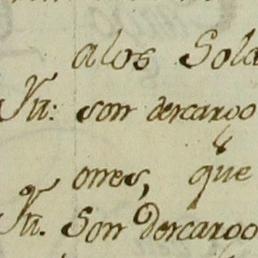 alos Sola
Yn: son dercargo
ones, que
Yn. Son Dercargo